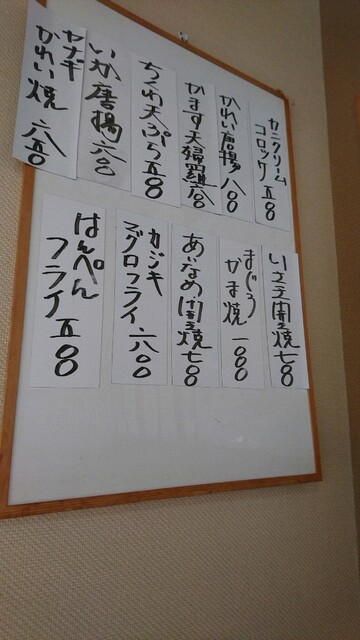 カニクリーム
コロッケ 五〇〇
かれい唐揚 八〇〇
かます天婦羅 六〇〇
ちくわ天ぷら 五〇〇
いか唐揚 六〇〇
ヤナギ
かれい焼 六五〇
開き焼 七〇〇
まぐろ
かま焼 一〇〇〇
あいなめ開き焼 七〇〇
カジキ
マグロフライ 六〇〇
はんぺん
フライ 五〇〇